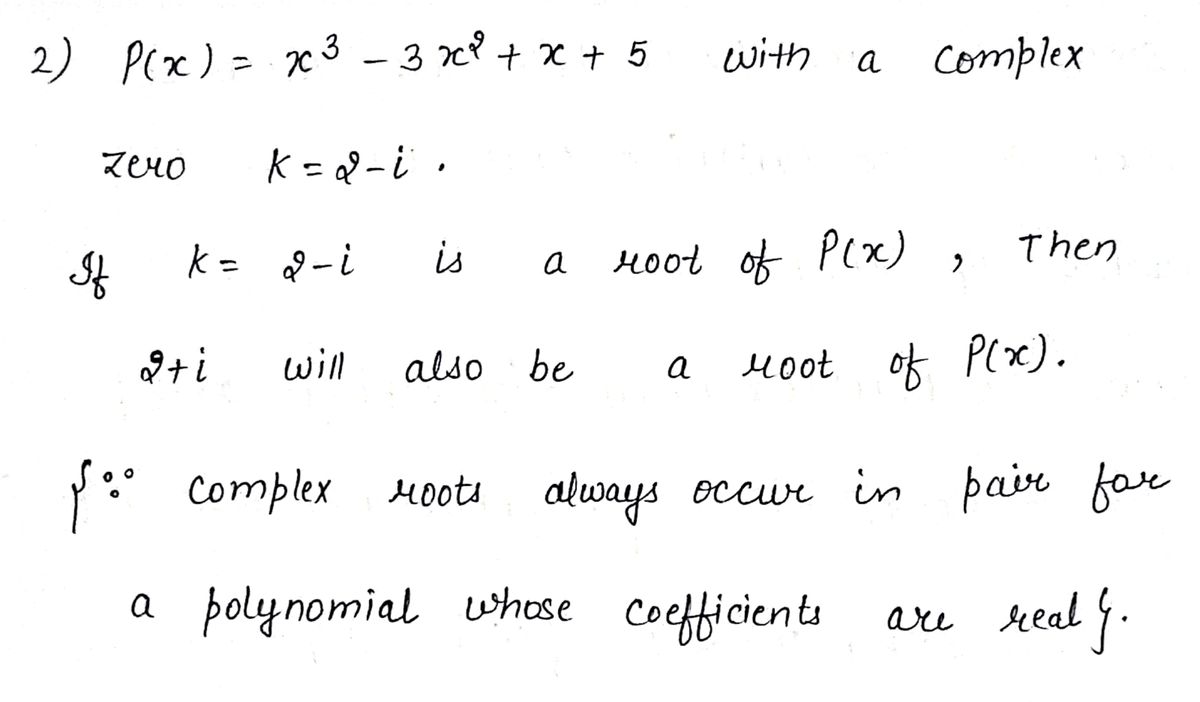 2) P(x) = x³ - 3x² + x + 5 with a complex
zero k = 2-i.
If k = 2-i is a root of P(x), Then
2+i will also be a root of P(x).
{∵ complex roots always occur in pair for
a polynomial whose coefficients are real}.